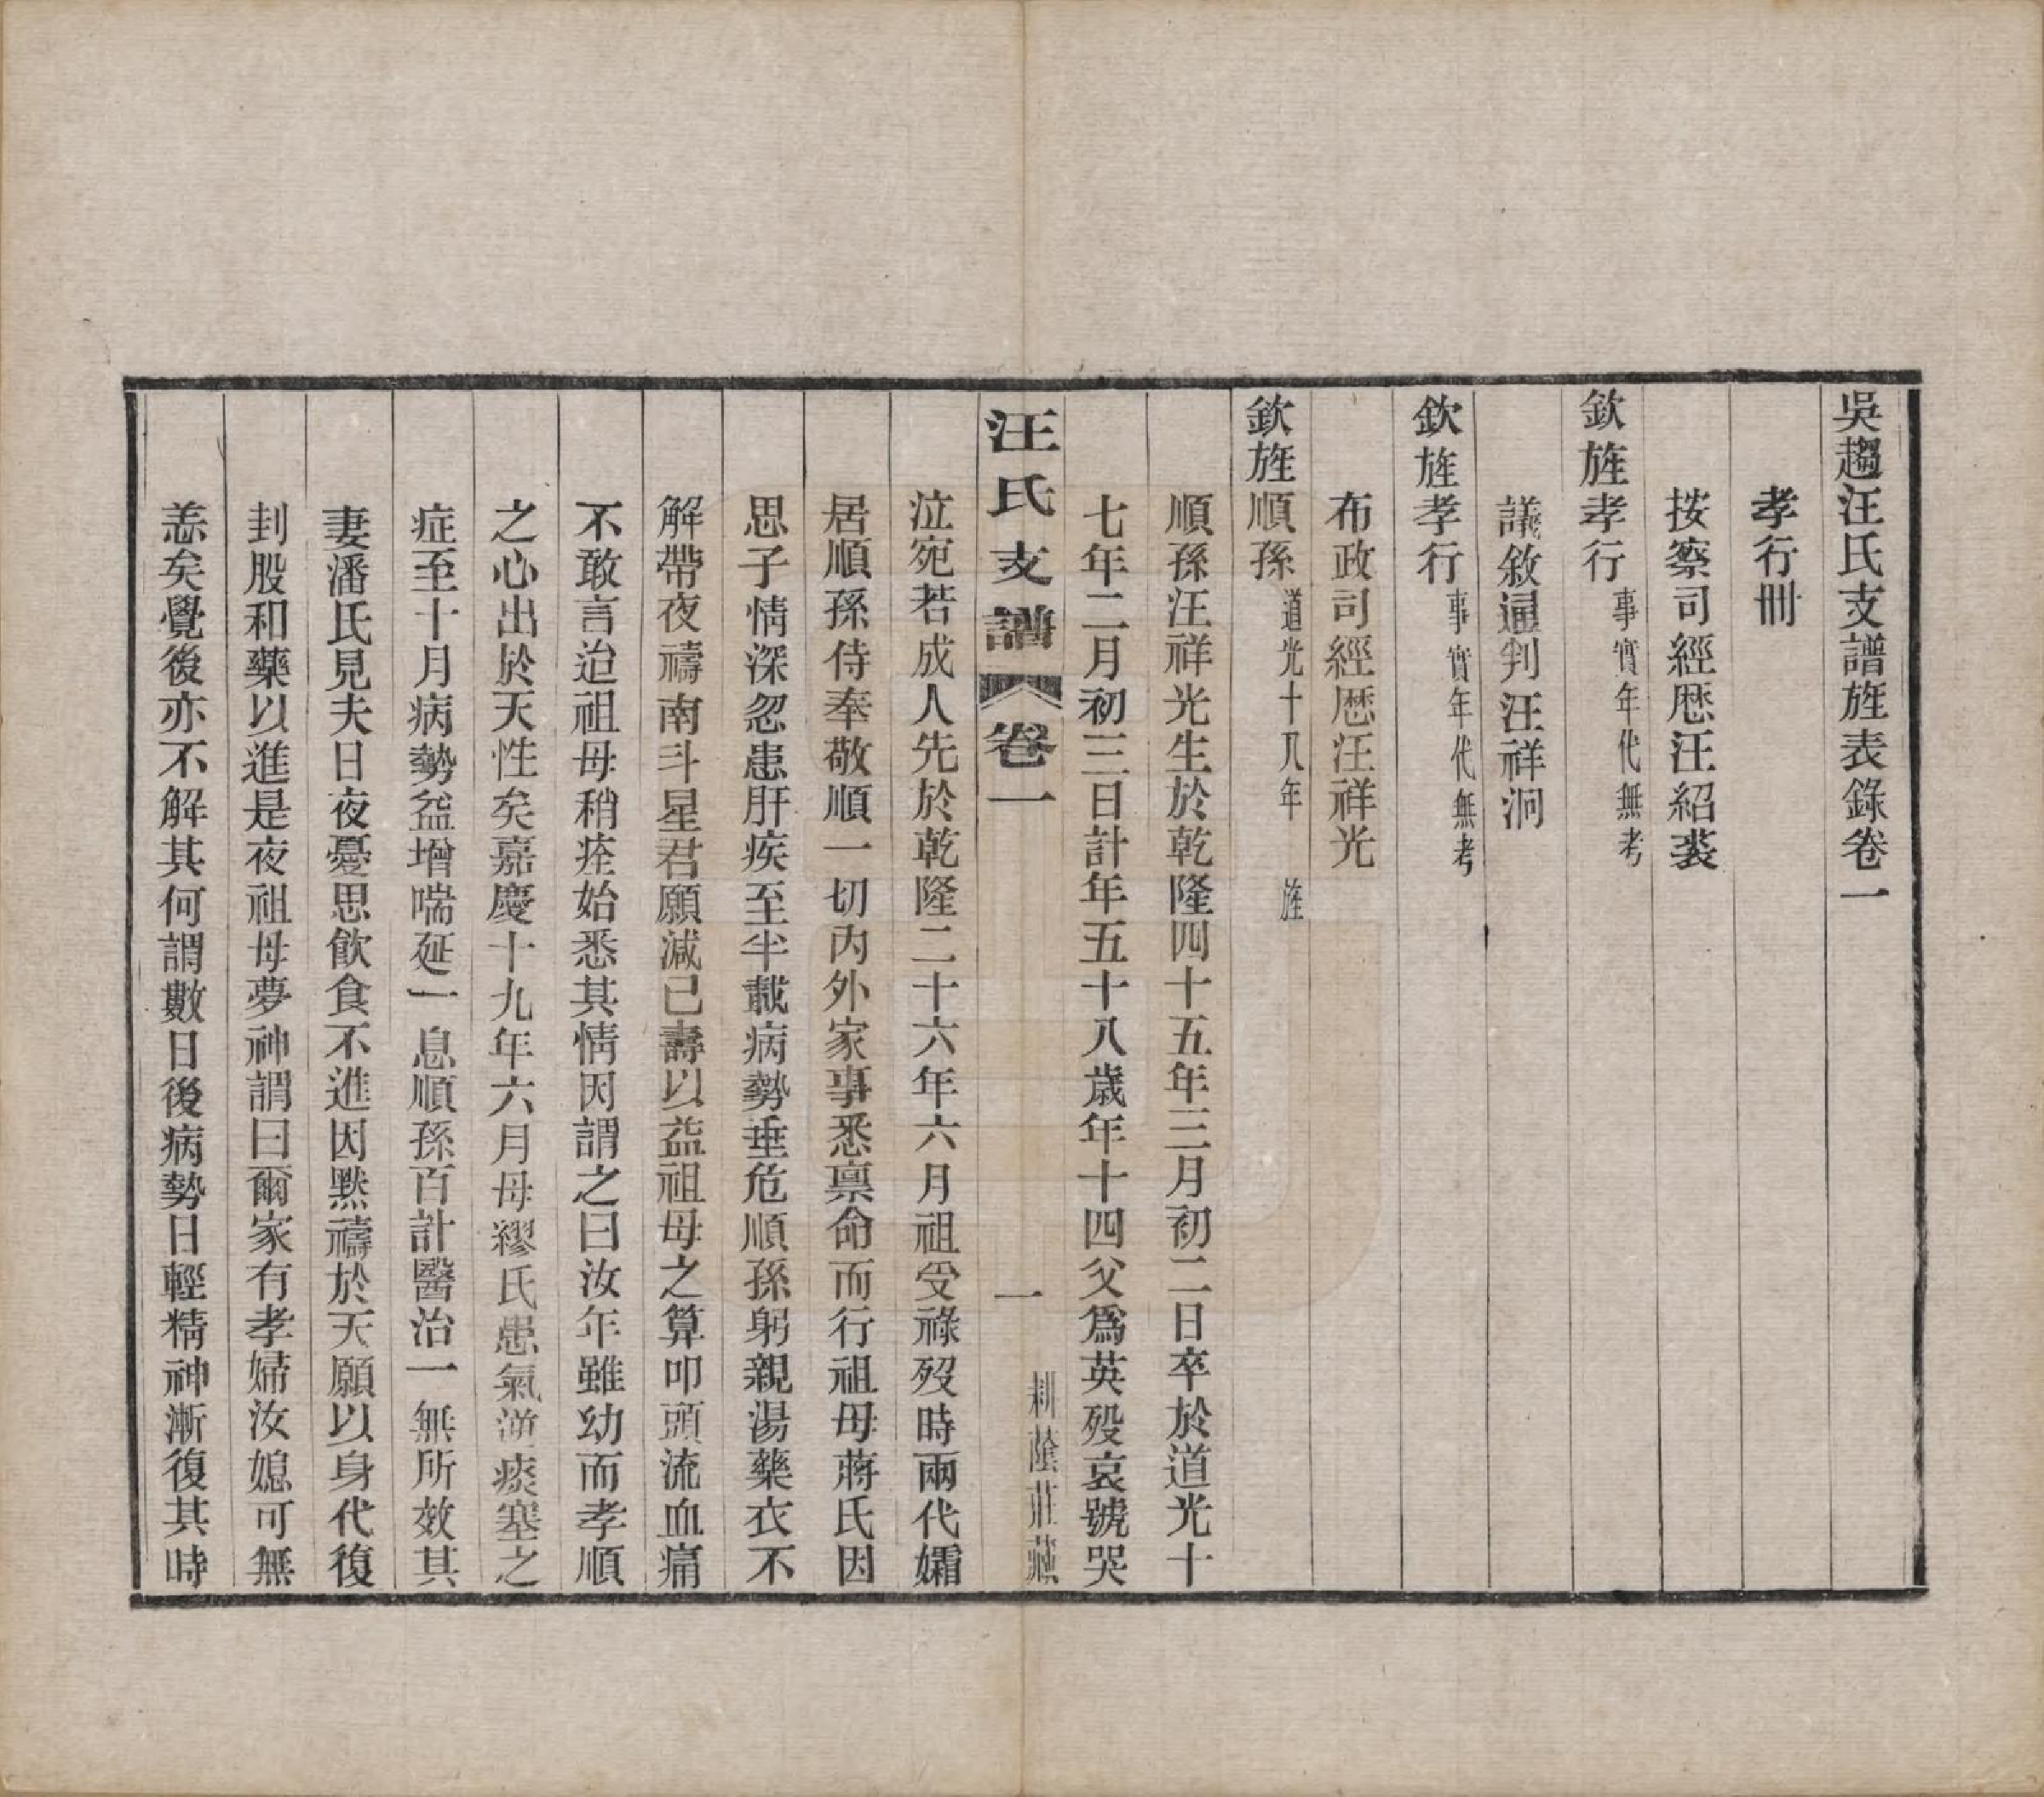 吳趨汪氏支譜旌表錄卷一
孝行冊
按察司經厯汪紹裘
欽旌孝行事實年代無考
議敘通判汪祥泂
欽旌孝行事實年代無考
布政司經厯汪祥光
欽旌順孫道光十八年 旌
順孫汪祥光生於乾隆四十五年三月初二日卒於道光十
七年二月初三日計年五十八歲年十四父爲英歿哀號哭
汪氏支譜 卷一 一 耕蔭莊藏
泣宛若成人先於乾隆二十六年六月祖受祿歿時兩代孀
居順孫侍奉敬順一切內外家事悉禀命而行祖母蔣氏因
思子情深忽患肝疾至半載病勢垂危順孫躬親湯藥衣不
解帶夜禱南斗星君願減己壽以益祖母之算叩頭流血痛
不敢言迨祖母稍痊始悉其情因謂之曰汝年雖幼而孝順
之心出於天性矣嘉慶十九年六月母繆氏患氣逆痰塞之
症至十月病勢益增喘延一息順孫百計醫治一無所效其
妻潘氏見夫日夜憂思飲食不進因默禱於天願以身代復
刲股和藥以進是夜祖母夢神謂曰爾家有孝婦汝媳可無
恙矣覺後亦不解其何謂數日後病勢日輕精神漸復其時